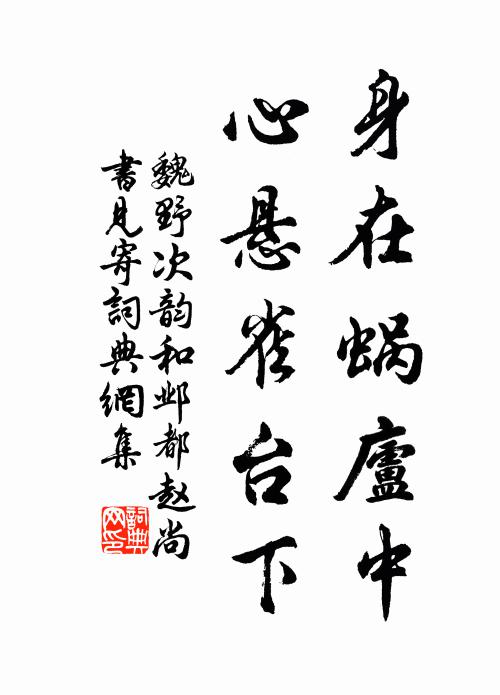 身在蜗廬中
心悬雀台下
魏野次韵和邺都赵尚
書見寄詞典網集
詞典网印